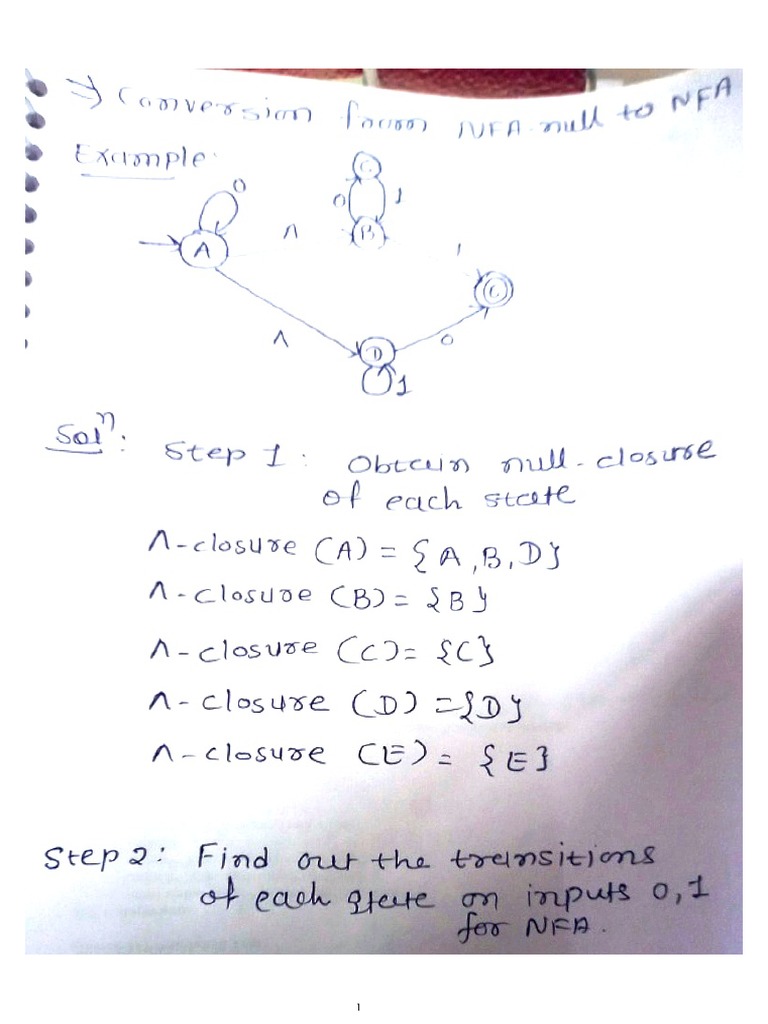 ⇒ Conversion from NFA-null to NFA
Example:
0
C
0 1
A
Λ
B
1
C
Λ
D
0
1
Solⁿ: Step 1: Obtain null-closure
of each state
Λ-closure (A) = {A, B, D}
Λ-closure (B) = {B}
Λ-closure (C) = {C}
Λ-closure (D) = {D}
Λ-closure (E) = {E}
Step 2: Find out the transitions
of each state on inputs 0, 1
for NFA.
1